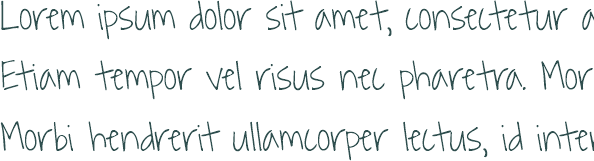 Lorem ipsum dolor sit amet, consectetur a
Etiam tempor vel risus nec pharetra. Mor
Morbi hendrerit ullamcorper lectus, id inter